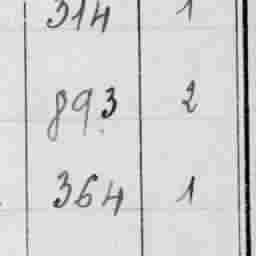 314 1
893 2
364 1